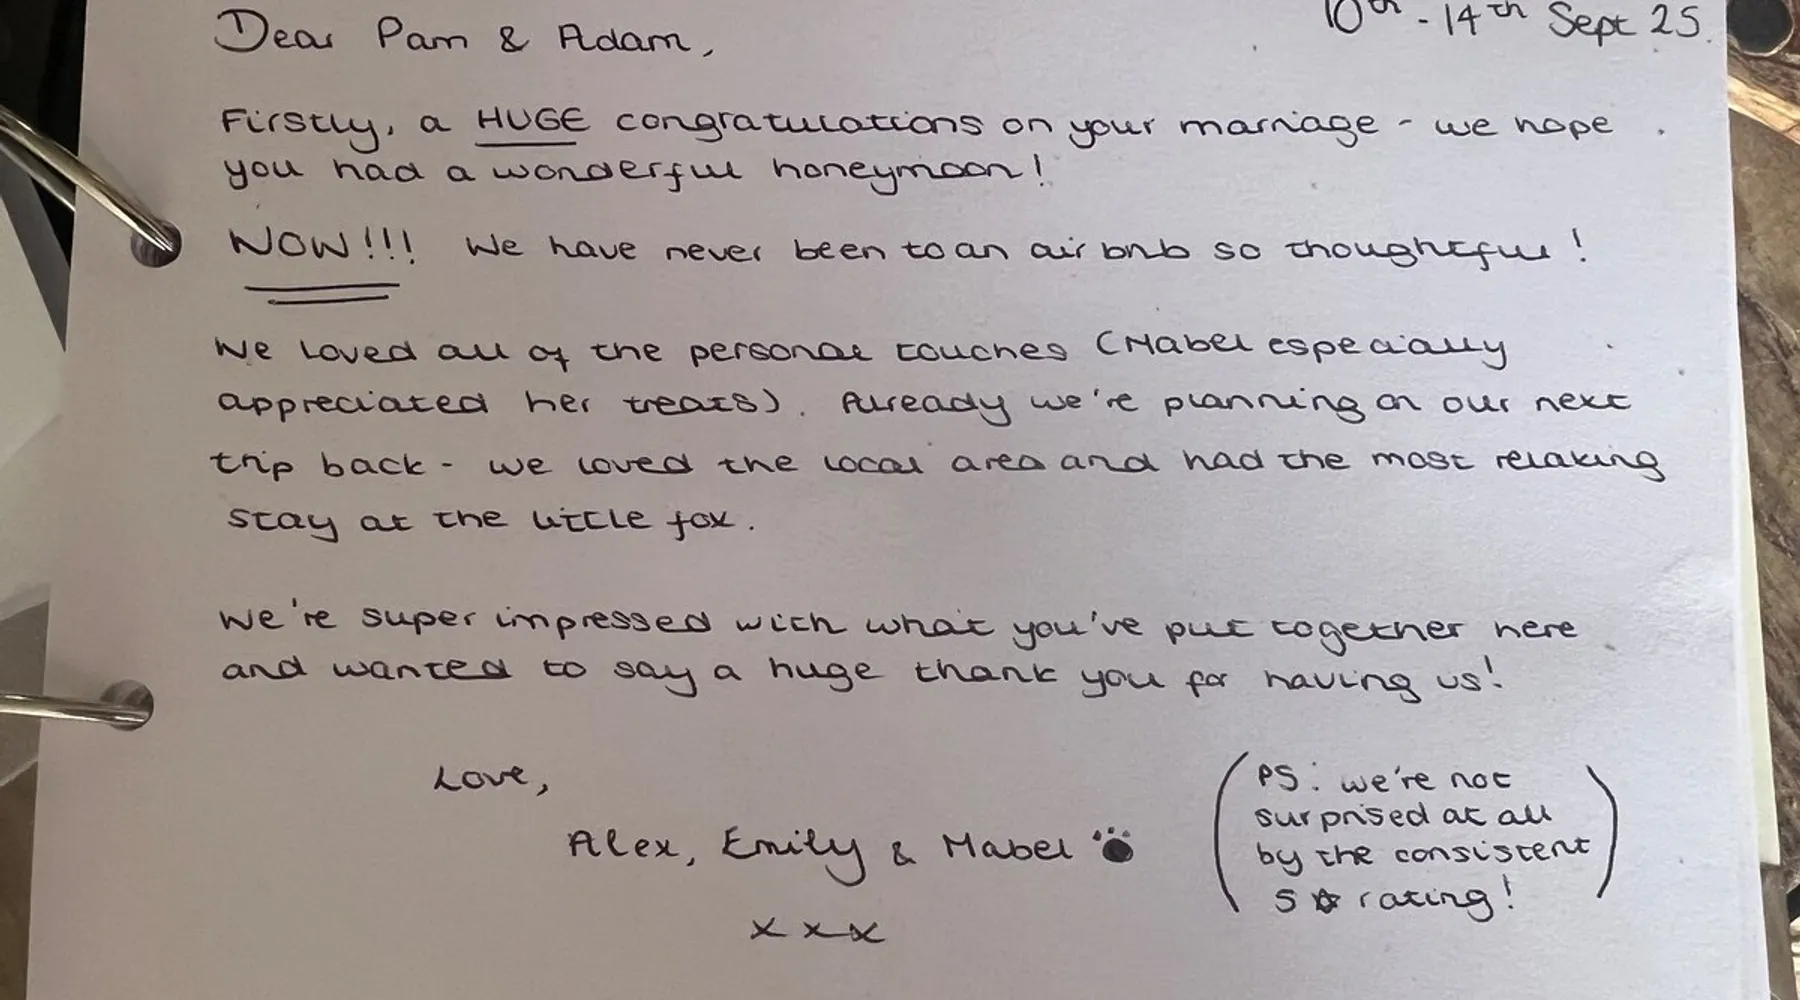 10th - 14th Sept 25.
Dear Pam & Adam,
Firstly, a HUGE congratulations on your marriage - we hope
you had a wonderful honeymoon!
NOW!!! We have never been to an air bnb so thoughtful!
We loved all of the personal touches (Mabel especially
appreciated her treats). Already we're planning on our next
trip back - we loved the local area and had the most relaxing
stay at the little fox.
We're super impressed with what you've put together here
and wanted to say a huge thank you for having us!
Love,
Alex, Emily & Mabel
x x x
(PS: we're not
surprised at all
by the consistent
5 ☆ rating!)